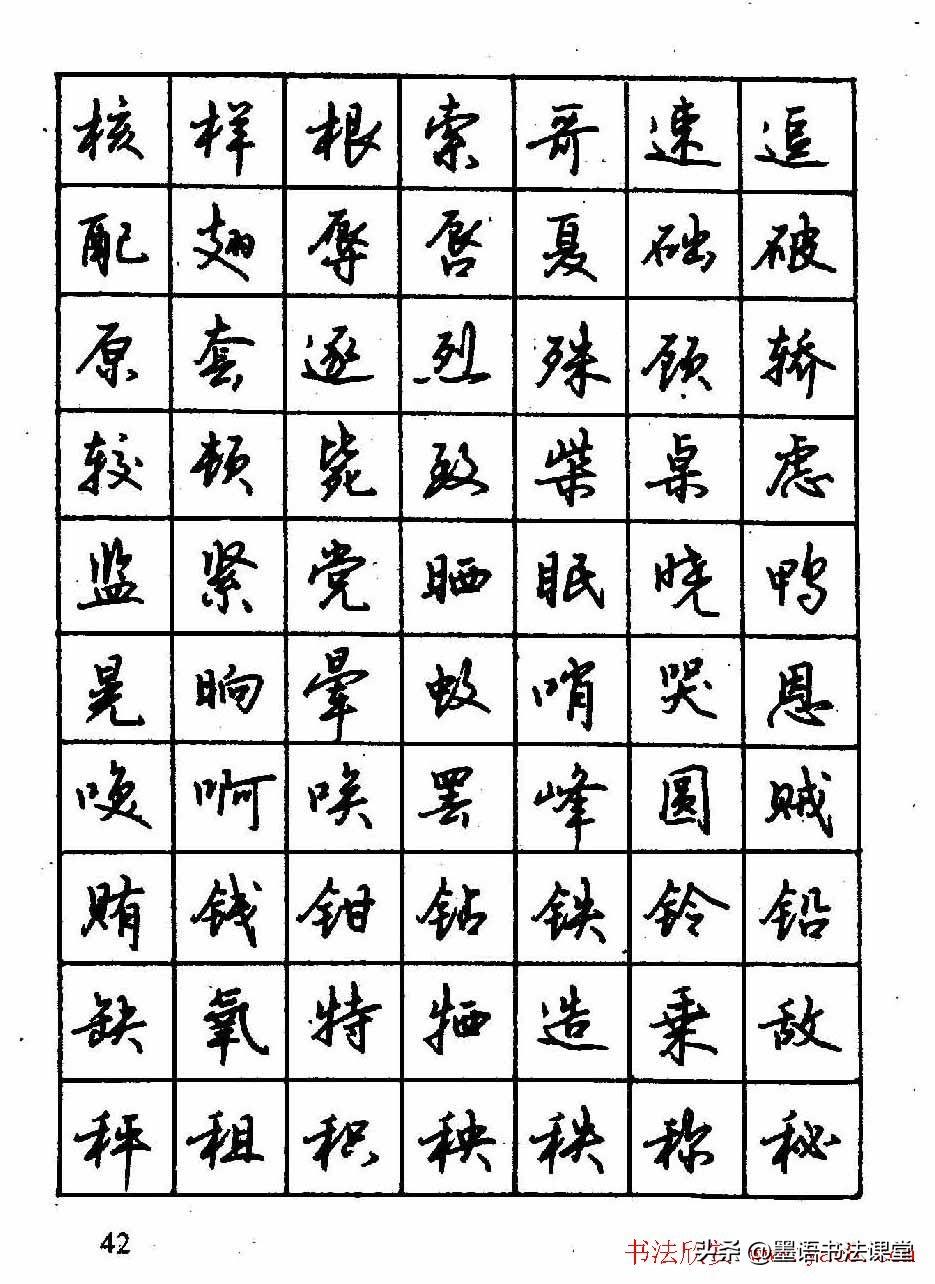 核 样 根 索 哥 速 逗
配 翅 辱 唇 夏 础 破
原 套 逐 烈 殊 顾 轿
较 顿 毙 致 柴 桌 虑
监 紧 党 晒 眠 晓 鸭
晃 晌 晕 蚊 哨 哭 恩
唤 啊 唉 罢 峰 圆 贼
贿 钱 钳 钻 铁 铃 铅
缺 氧 特 牺 造 乘 敌
秤 租 积 秧 秩 称 秘
42
书法欣 头条 @墨语书法课堂